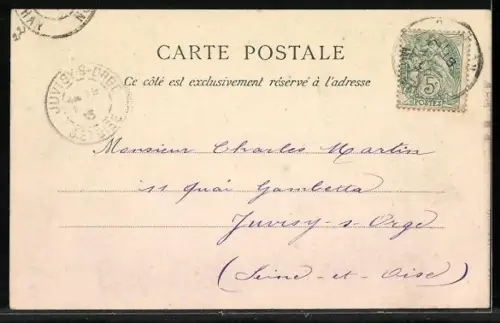 CARTE POSTALE
Ce côté est exclusivement réservé à l'adresse
5c
POSTES
JUVISY-S-ORGE
Monsieur Charles Martin
11 Quai Gambetta
Juvisy-s-Orge
(Seine-et-Oise)